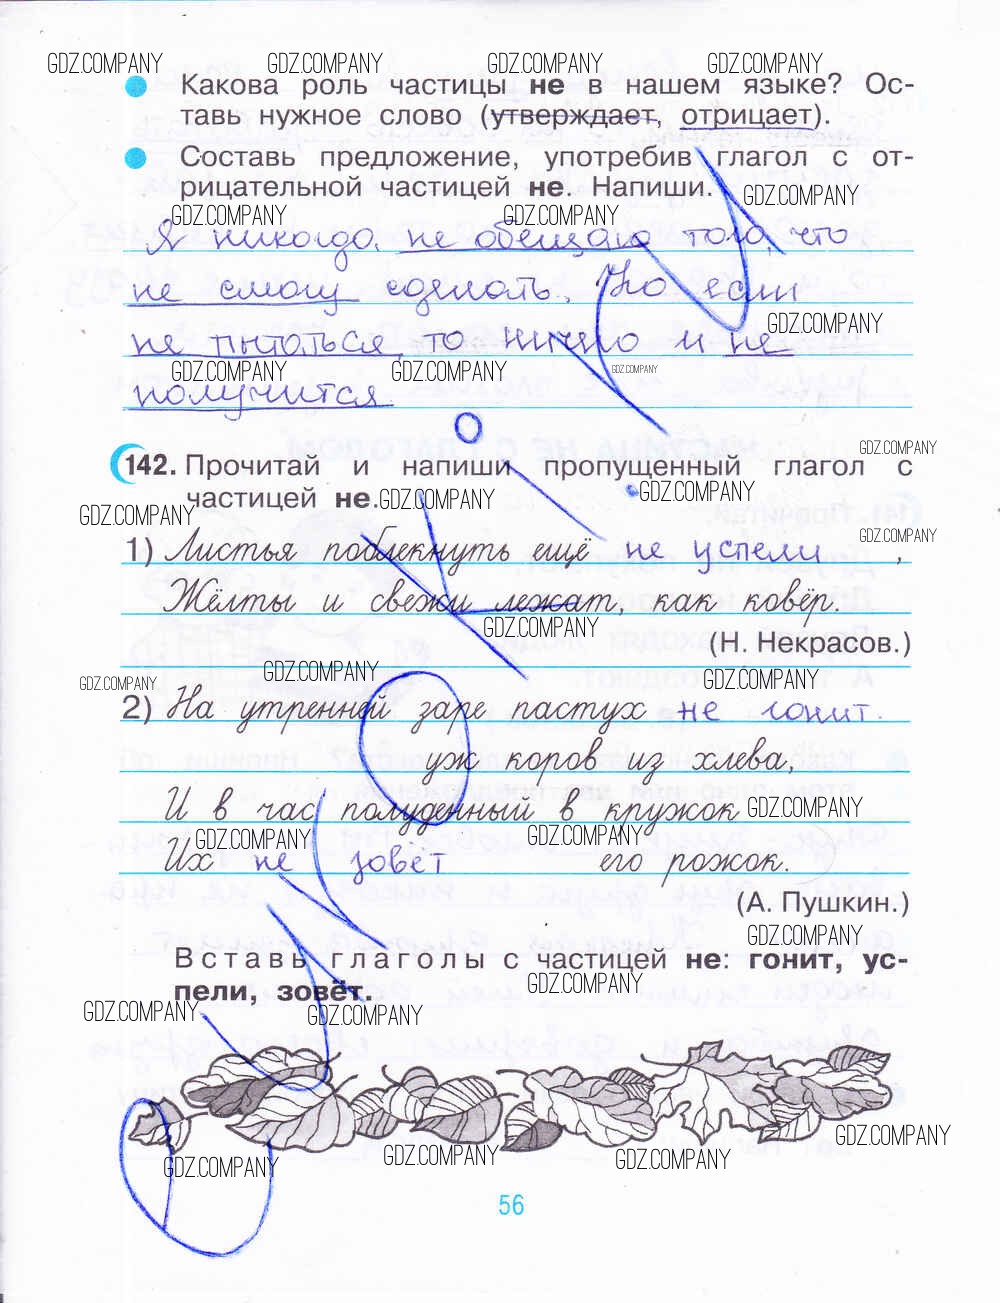 GDZ.COMPANY GDZ.COMPANY GDZ.COMPANY GDZ.COMPANY
Какова роль частицы не в нашем языке? Ос-
тавь нужное слово (утверждает, отрицает).
Составь предложение, употребив глагол с от-
рицательной частицей не. Напиши.
GDZ.COMPANY
GDZ.COMPANY GDZ.COMPANY
Я никогда не обещаю того, что
не смогу сделать. Но если
GDZ.COMPANY
не пытаться, то ничего и не
GDZ.COMPANY GDZ.COMPANY GDZ.COMPANY
получится.
142. Прочитай и напиши пропущенный глагол с
GDZ.COMPANY
частицей не.
GDZ.COMPANY GDZ.COMPANY
GDZ.COMPANY
GDZ.COMPANY
1) Листья поблекнуть ещё не успели ,
Жёлты и свежи лежат, как ковёр.
GDZ.COMPANY
(Н. Некрасов.)
GDZ.COMPANY
GDZ.COMPANY GDZ.COMPANY
2) На утренней заре пастух не гонит
уж коров из хлева,
И в час полуденный в кружок
GDZ.COMPANY
GDZ.COMPANY GDZ.COMPANY
Их не зовёт его рожок.
(А. Пушкин.)
GDZ.COMPANY
Вставь глаголы с частицей не: гонит, ус-
GDZ.COMPANY
пели, зовёт.
GDZ.COMPANY GDZ.COMPANY
GDZ.COMPANY
GDZ.COMPANY GDZ.COMPANY GDZ.COMPANY
56